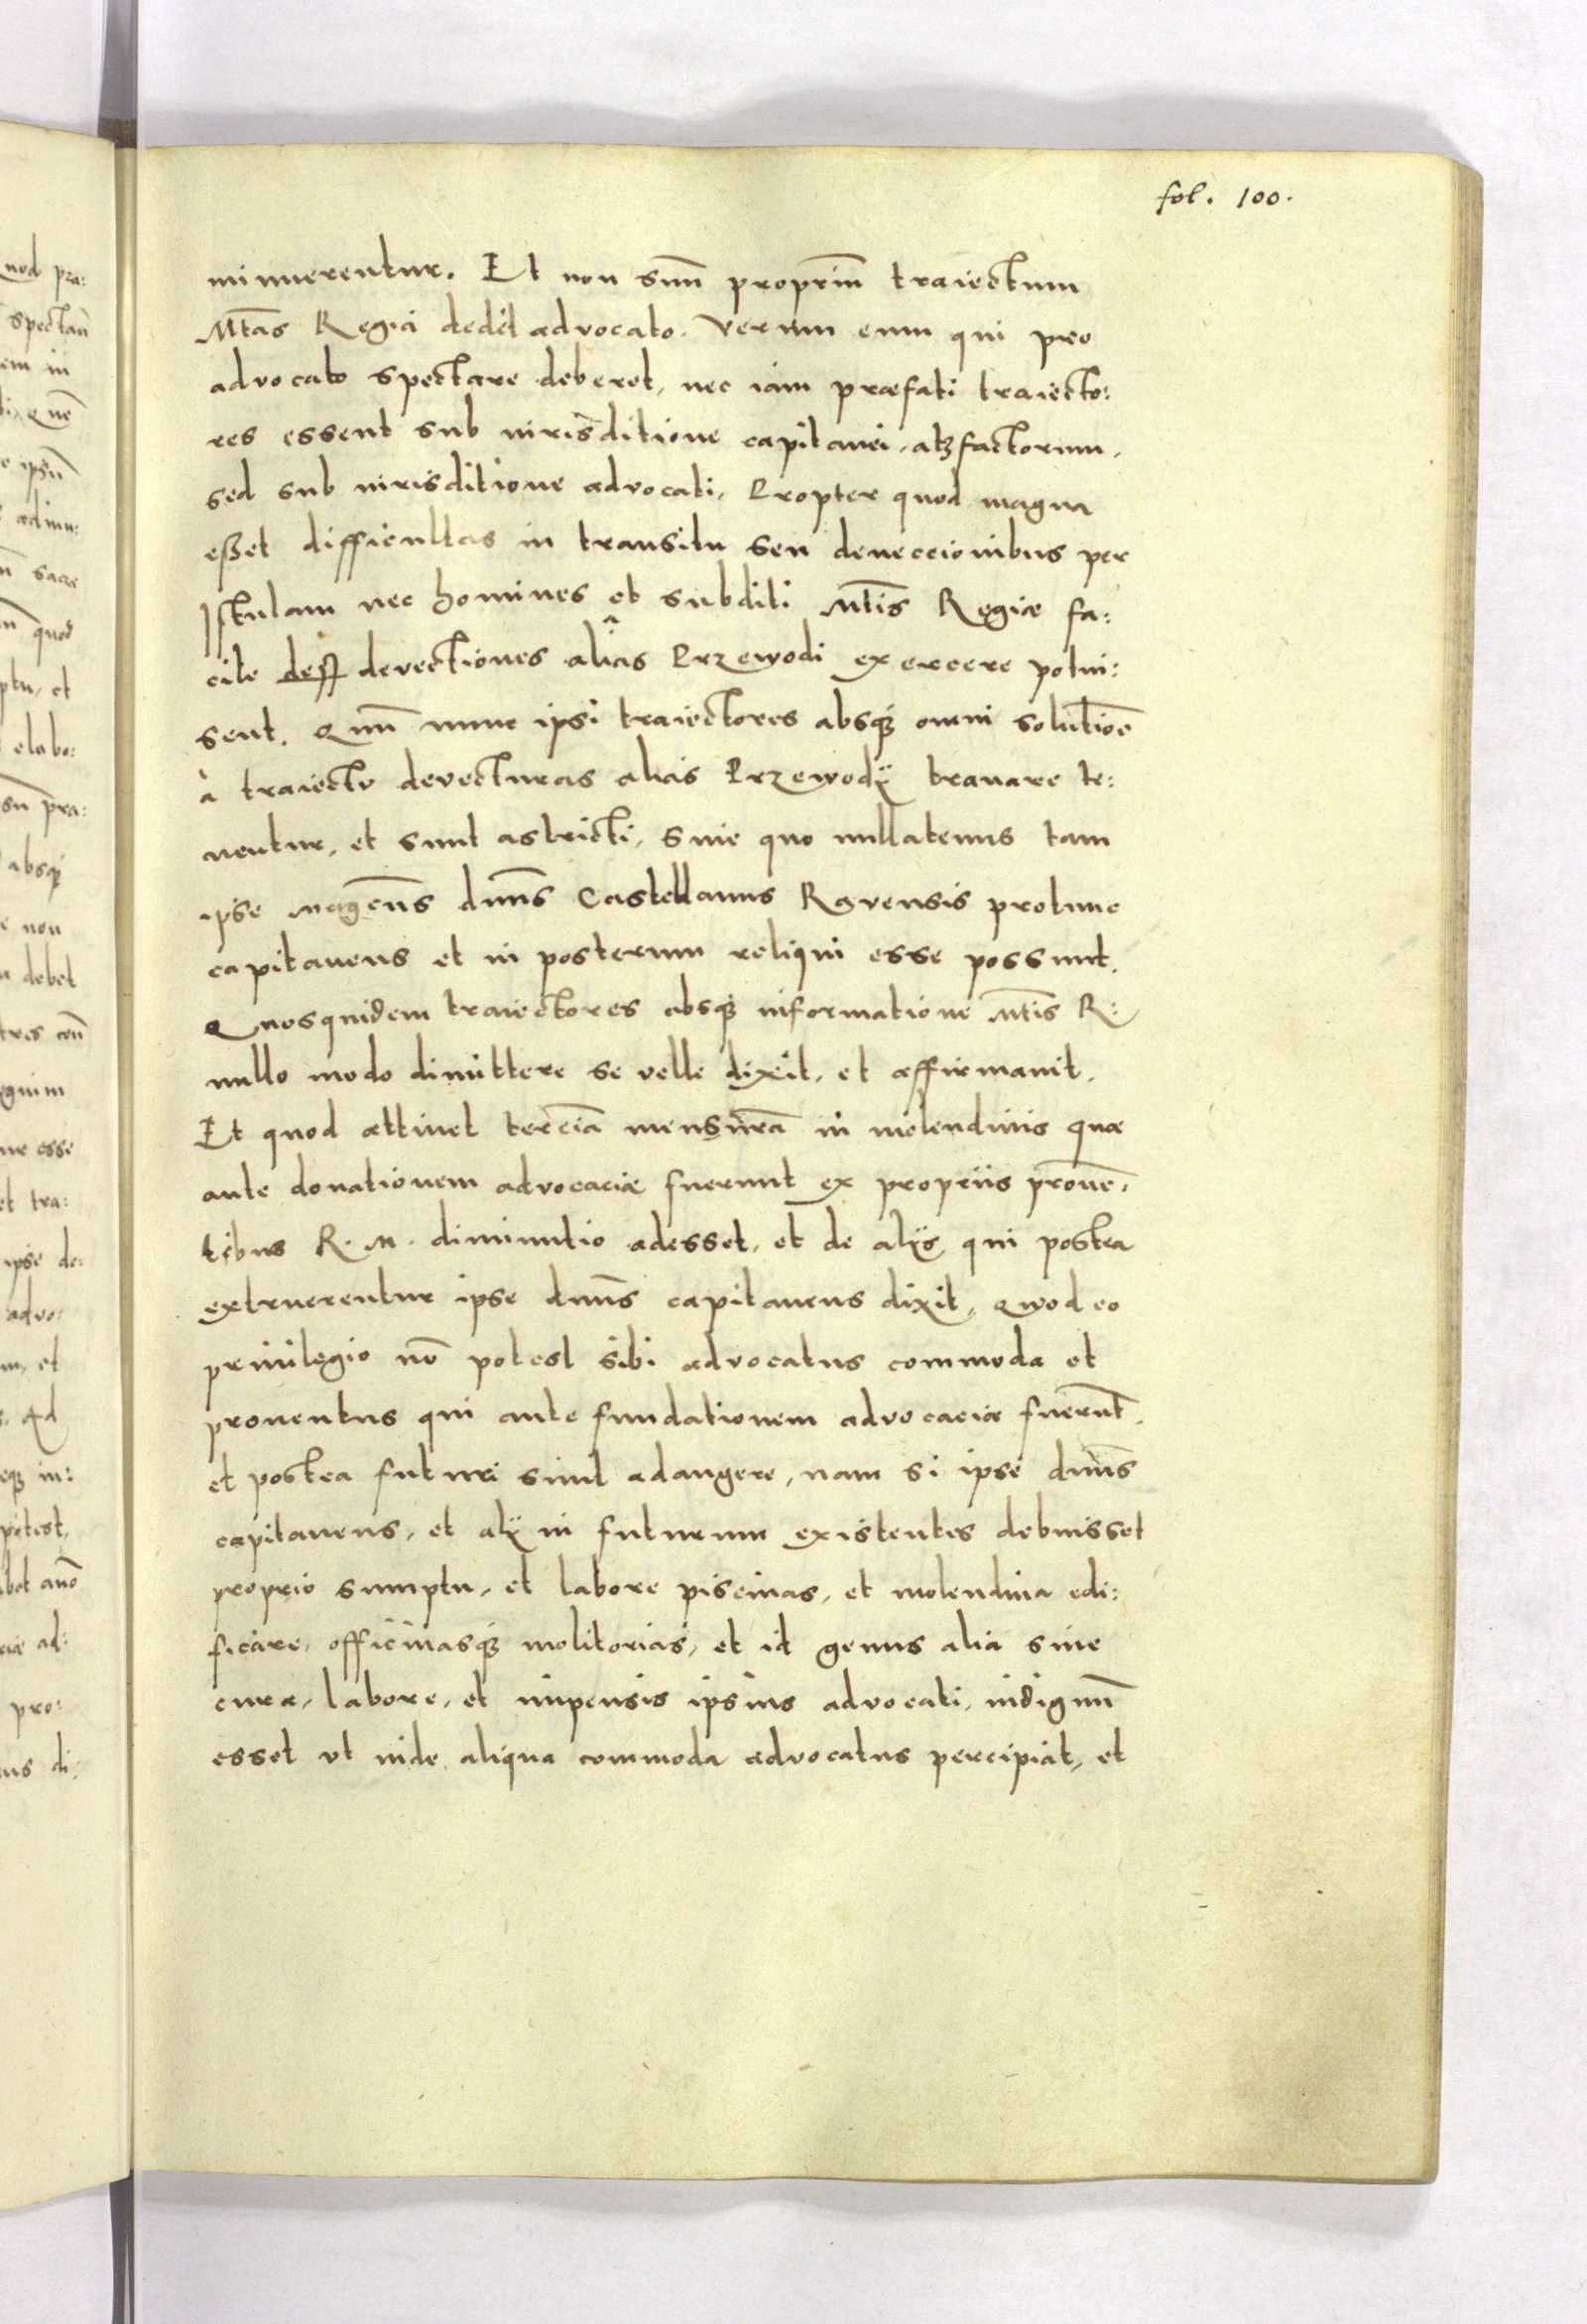 fol. 100.
minuerentur. Et non suū propriū traiectum
Mt̄as Regia dedit advocato. Verum eum qui pro
advocato spectare deberet, nec iam præfati traiecto:
res essent sub iurisditione capitanei, atq factorum,
sed sub iurisditione advocati, Propter quod magna
eßet difficultas in transitu seu deueccionibus per
Istulam nec homines et subditi Mt̄is Regiæ fa:
cile devectiones aliâs Przewodi exercere potui:
sent. Quū nunc ipsi traiectores absq; omni solutiōe
à traiectu devecturas alias Przewodÿ tranare te:
nentur, et sunt astricti, Sine quo nullatenus tam
ipse Magc̄us dn̄us Castellanus Ravensis protunc
capitaneus et in posterum reliqui esse possunt.
Quosquidem traiectores absq; informatione Mt̄is R:
nullo modo dimittere se velle dixit, et affirmauit.
Et quod attinet terciā mensurā in molendinis quæ
ante donationem advocaciæ fuerunt ex propriis proue:
tibus R. M. diminutio adesset, et de alÿs qui postea
extruerentur ipse dn̄us capitaneus dixit, Quod eo
priuilegio nō potest sibi advocatus commoda et
prouentus qui ante fundationem advocaciæ fuerūt,
et postea futuri sunt adaugere, nam si ipse dn̄us
capitaneus, et alÿ in futurum existentes debuisset
proprio sumptu, et labore piscinas, et molendina edi:
ficare, officinasq; molitorias, et id genus alia sine
cura, labore, et impensis ipsius advocati, indignū
esset vt inde aliqua commoda advocatus percipiat, et